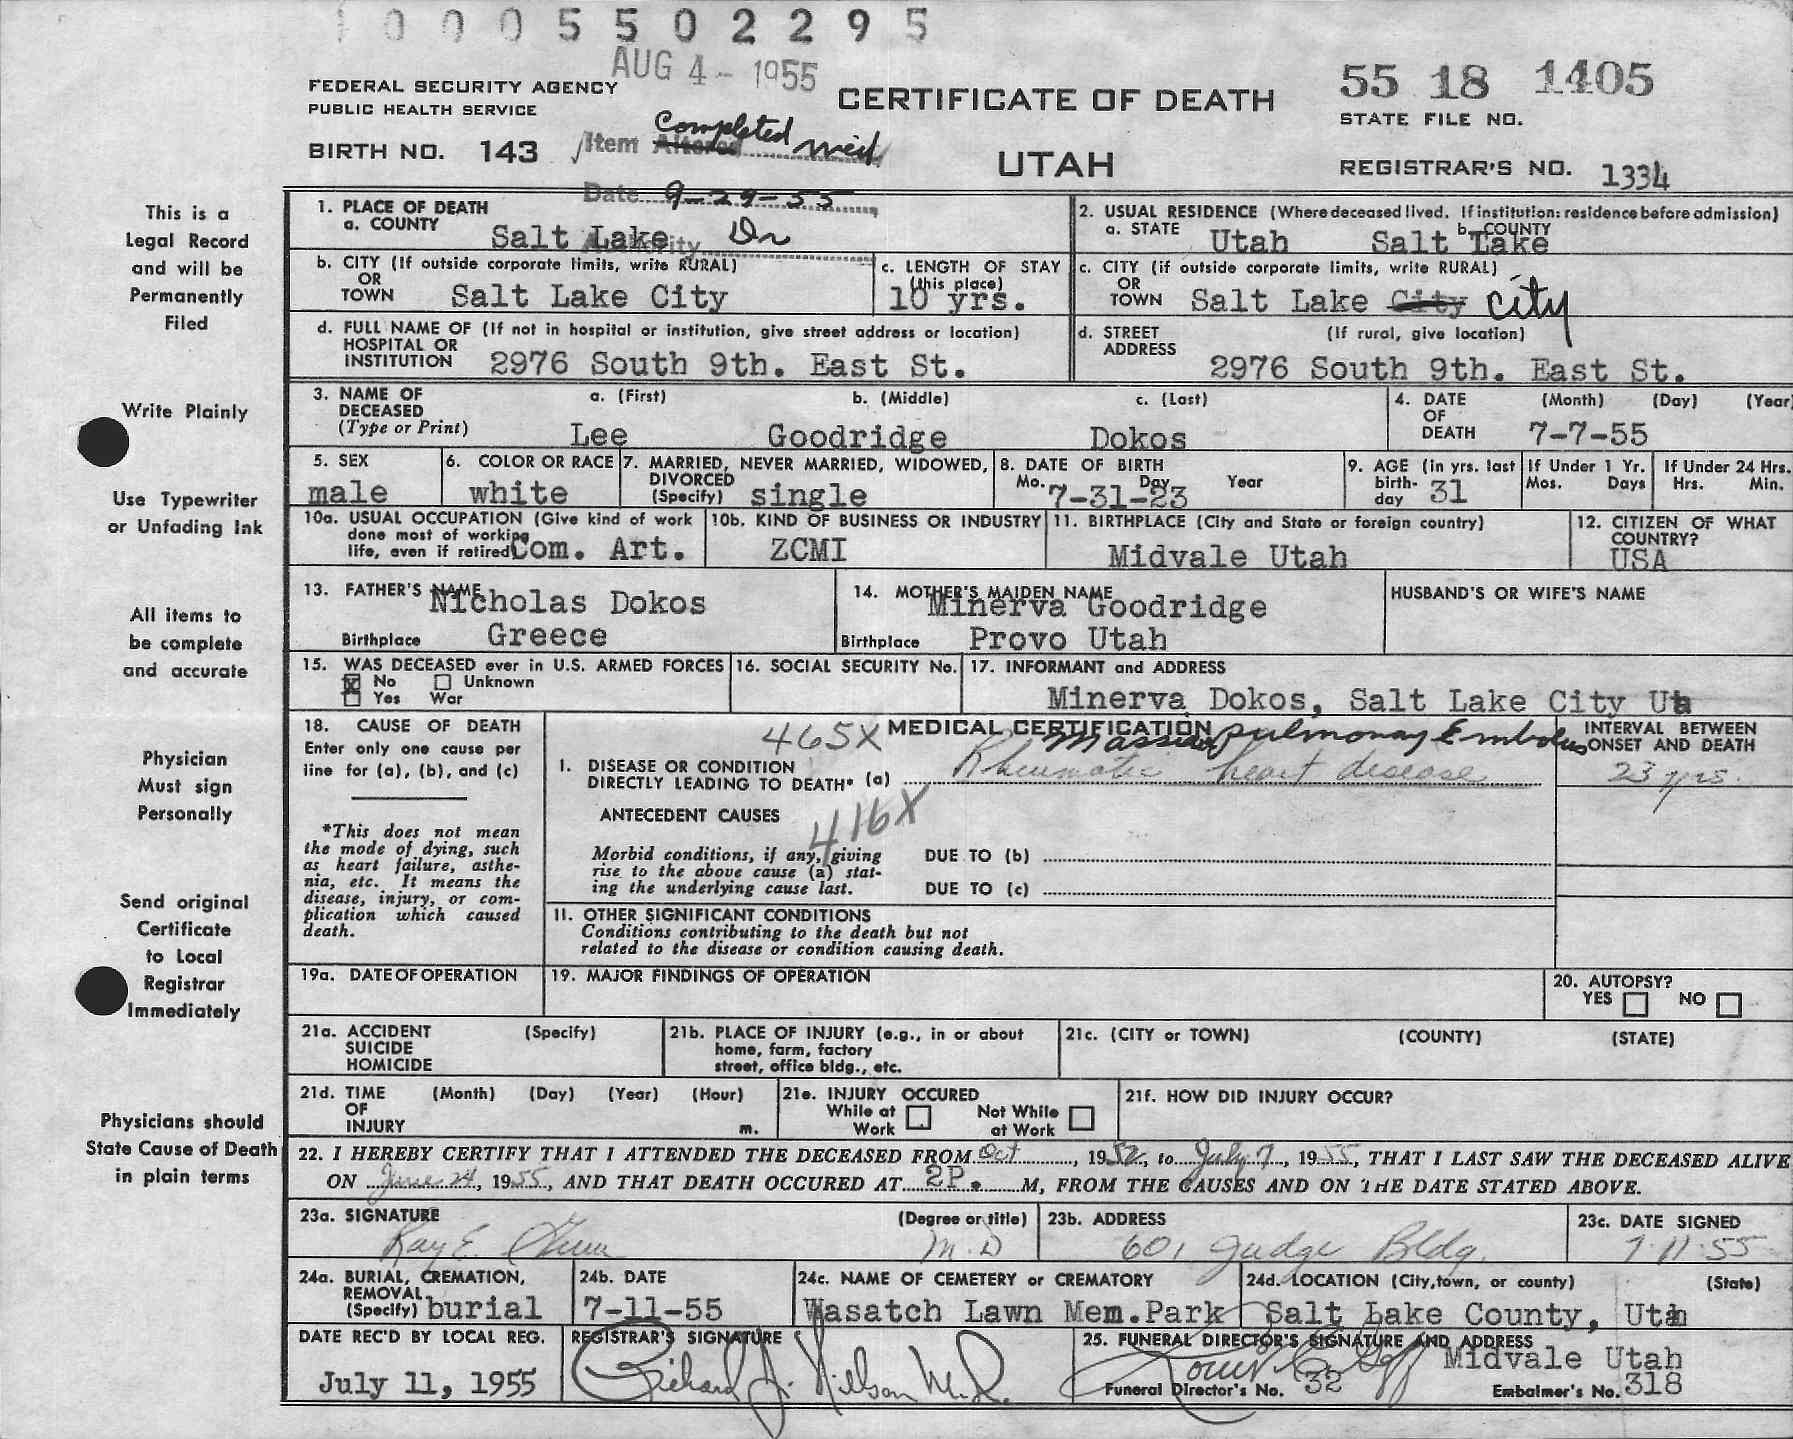 1 0 0 0 5 5 0 2 2 9 5
AUG 4 - 1955
FEDERAL SECURITY AGENCY
PUBLIC HEALTH SERVICE
CERTIFICATE OF DEATH
55 18 1405
STATE FILE NO.
BIRTH NO. 143
Item Altered Completed
UTAH
REGISTRAR'S NO. 1334
Date 9-29-55
Authority Dr
This is a
Legal Record
and will be
Permanently
Filed
1. PLACE OF DEATH
a. COUNTY Salt Lake
2. USUAL RESIDENCE (Where deceased lived. If institution: residence before admission)
a. STATE Utah b. COUNTY Salt Lake
b. CITY (If outside corporate limits, write RURAL)
OR
TOWN Salt Lake City
c. LENGTH OF STAY
(this place)
10 yrs.
c. CITY (if outside corporate limits, write RURAL)
OR
TOWN Salt Lake City City
d. FULL NAME OF (If not in hospital or institution, give street address or location)
HOSPITAL OR
INSTITUTION 2976 South 9th. East St.
d. STREET (If rural, give location)
ADDRESS 2976 South 9th. East St.
Write Plainly
3. NAME OF a. (First) b. (Middle) c. (Last)
DECEASED
(Type or Print) Lee Goodridge Dokos
4. DATE (Month) (Day) (Year)
OF
DEATH 7-7-55
5. SEX
male
6. COLOR OR RACE
white
7. MARRIED, NEVER MARRIED, WIDOWED,
DIVORCED
(Specify) single
8. DATE OF BIRTH
Mo. Day Year
7-31-23
9. AGE (in yrs. last
birth-
day 31
If Under 1 Yr.
Mos. Days
If Under 24 Hrs.
Hrs. Min.
Use Typewriter
or Unfading Ink
10a. USUAL OCCUPATION (Give kind of work
done most of working
life, even if retired Com. Art.
10b. KIND OF BUSINESS OR INDUSTRY
ZCMI
11. BIRTHPLACE (City and State or foreign country)
Midvale Utah
12. CITIZEN OF WHAT
COUNTRY?
USA
All items to
be complete
and accurate
13. FATHER'S NAME
Nicholas Dokos
Birthplace Greece
14. MOTHER'S MAIDEN NAME
Minerva Goodridge
Birthplace Provo Utah
HUSBAND'S OR WIFE'S NAME
15. WAS DECEASED ever in U.S. ARMED FORCES
No Unknown
Yes War
16. SOCIAL SECURITY No.
17. INFORMANT and ADDRESS
Minerva Dokos, Salt Lake City Uta
Physician
Must sign
Personally
18. CAUSE OF DEATH
Enter only one cause per
line for (a), (b), and (c)
*This does not mean
the mode of dying, such
as heart failure, asthe-
nia, etc. It means the
disease, injury, or com-
plication which caused
death.
465X MEDICAL CERTIFICATION
Massive pulmonary Embolus
I. DISEASE OR CONDITION
DIRECTLY LEADING TO DEATH* (a) Rheumatic heart disease
INTERVAL BETWEEN
ONSET AND DEATH
23 yrs.
ANTECEDENT CAUSES
416X
Morbid conditions, if any, giving
rise to the above cause (a) stat-
ing the underlying cause last.
DUE TO (b)
DUE TO (c)
II. OTHER SIGNIFICANT CONDITIONS
Conditions contributing to the death but not
related to the disease or condition causing death.
Send original
Certificate
to Local
Registrar
Immediately
19a. DATE OF OPERATION
19. MAJOR FINDINGS OF OPERATION
20. AUTOPSY?
YES NO
21a. ACCIDENT (Specify)
SUICIDE
HOMICIDE
21b. PLACE OF INJURY (e.g., in or about
home, farm, factory
street, office bldg., etc.
21c. (CITY or TOWN) (COUNTY) (STATE)
21d. TIME (Month) (Day) (Year) (Hour)
OF
INJURY m.
21e. INJURY OCCURED
While at Work Not While at Work
21f. HOW DID INJURY OCCUR?
Physicians should
State Cause of Death
in plain terms
22. I HEREBY CERTIFY THAT I ATTENDED THE DECEASED FROM Oct, 1952, to July 7, 1955, THAT I LAST SAW THE DECEASED ALIVE
ON June 24, 1955, AND THAT DEATH OCCURED AT 2P. M, FROM THE CAUSES AND ON THE DATE STATED ABOVE.
23a. SIGNATURE (Degree or title)
Ray E. M.D
23b. ADDRESS
601 Judge Bldg.
23c. DATE SIGNED
7-11-55
24a. BURIAL, CREMATION,
REMOVAL
(Specify) burial
24b. DATE
7-11-55
24c. NAME OF CEMETERY or CREMATORY
Wasatch Lawn Mem.Park
24d. LOCATION (City, town, or county) (State)
Salt Lake County, Utah
DATE REC'D BY LOCAL REG.
July 11, 1955
REGISTRAR'S SIGNATURE
Richard J. Nilson M.D.
25. FUNERAL DIRECTOR'S SIGNATURE AND ADDRESS
Midvale Utah
Funeral Director's No. 32
Embalmer's No. 318